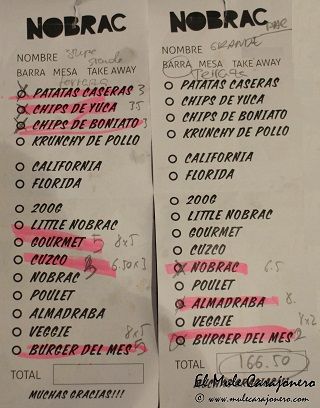 NOBRAC
NOMBRE grupo grande
BARRA MESA TAKE AWAY
terraza
PATATAS CASERAS 3
CHIPS DE YUCA 3.5
CHIPS DE BONIATO 3
KRUNCHY DE POLLO
CALIFORNIA
FLORIDA
200G
LITTLE NOBRAC
GOURMET 5 8x5
CUZCO 3 6.50x3
NOBRAC
POULET
ALMADRABA
VEGGIE
BURGER DEL MES 5 8x5
TOTAL
MUCHAS GRACIAS!!!
NOBRAC
NOMBRE GRANDE
BARRA MESA TAKE AWAY
terraza
PATATAS CASERAS
CHIPS DE YUCA
CHIPS DE BONIATO
KRUNCHY DE POLLO
CALIFORNIA
FLORIDA
200G
LITTLE NOBRAC
GOURMET
CUZCO
NOBRAC 6.5
POULET
ALMADRABA 8.
VEGGIE
BURGER DEL MES 2 8x2
TOTAL 166.50
El Mule Carajonero
© www.mulecarajonero.com